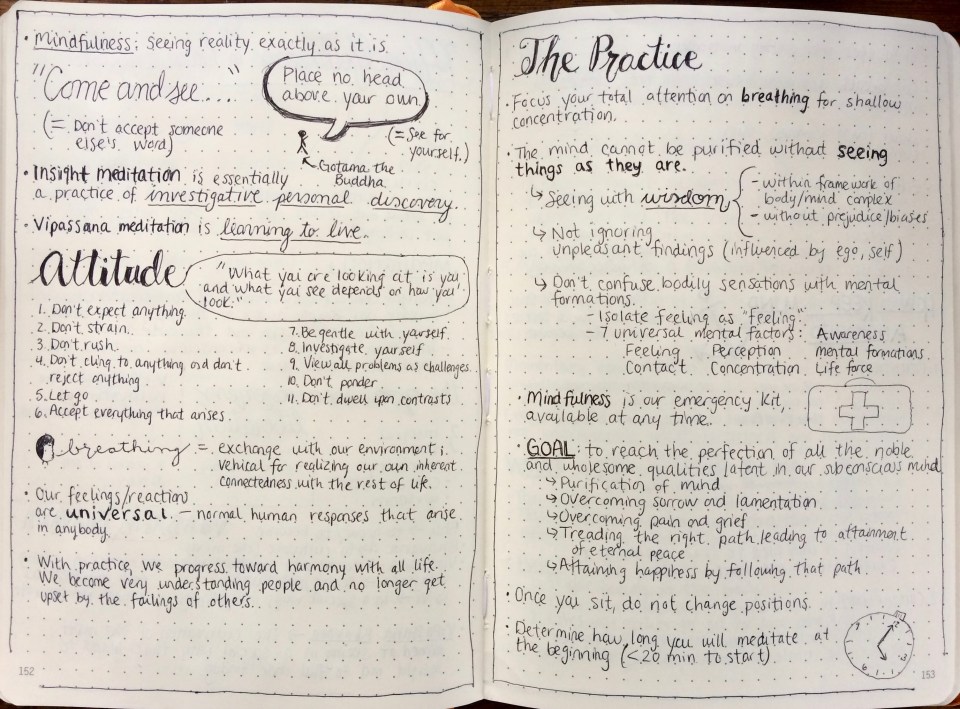 · Mindfulness: Seeing reality exactly as it is.
"Come and see...."
(= Don't accept someone
else's word)
Place no head
above your own.
(= See for
yourself.)
Gotama the
Buddha
· Insight meditation is essentially
a practice of investigative personal discovery.
· Vipassana meditation is learning to live.
Attitude
"What you are looking at is you
and what you see depends on how you
look."
1. Don't expect anything.
2. Don't strain.
3. Don't rush.
4. Don't cling to anything and don't
reject anything
5. Let go
6. Accept everything that arises.
7. Be gentle with yourself.
8. Investigate yourself
9. View all problems as challenges.
10. Don't ponder
11. Don't dwell upon contrasts
breathing = exchange with our environment;
vehical for realizing our own inherent
connectedness with the rest of life.
· Our feelings/reaction
are universal – normal human responses that arise
in anybody.
· With practice, we progress toward harmony with all life.
We become very understanding people and no longer get
upset by the failings of others.
152
The Practice
· Focus your total attention on breathing for shallow
concentration.
· The mind cannot be purified without seeing
things as they are.
↳ Seeing with wisdom
- within framework of
body/mind complex
- without prejudice/biases
↳ Not ignoring
unpleasant findings (influenced by ego, self)
↳ Don't confuse bodily sensations with mental
formations.
- Isolate feeling as "feeling"
- 7 universal mental factors: Awareness
Feeling Perception mental formations
Contact Concentration Life force
· Mindfulness is our emergency kit,
available at any time.
· GOAL: to reach the perfection of all the noble
and wholesome qualities latent in our subconscious mind
↳ Purification of mind
↳ Overcoming sorrow and lamentation
↳ Overcoming pain and grief
↳ Treading the right path leading to attainment
of eternal peace
↳ Attaining happiness by following that path.
· Once you sit, do not change positions.
· Determine how long you will meditate at
the beginning (<20 min to start).
12
3
6
9
153